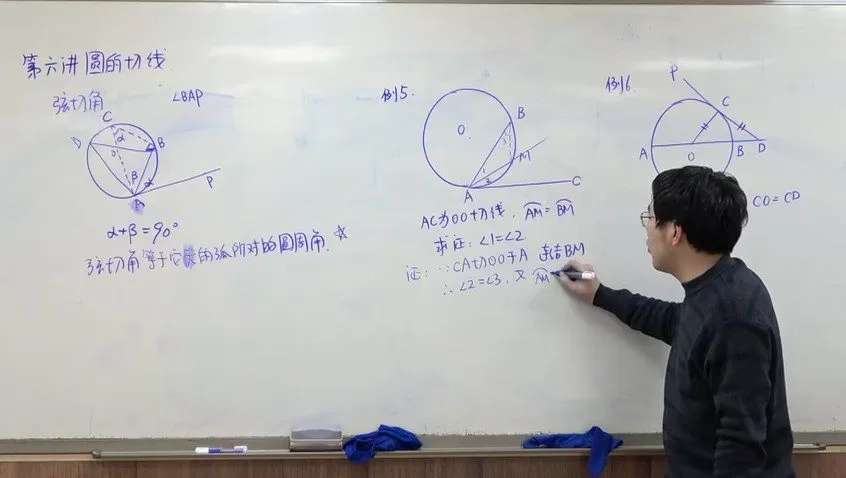 第六讲 圆的切线
弦切角
∠BAP
C
D
B
α
O
β
α
A
P
α+β=90°
弦切角等于它夹的弧所对的圆周角 ☆
例5.
O
B
3
M
1
2
A
C
AC为⊙O切线, AM=BM
求证: ∠1=∠2
证: ∵CA切⊙O于A 连结BM
∴∠2=∠3, 又 AM
例6
P
C
A
O
B
D
CO=CD